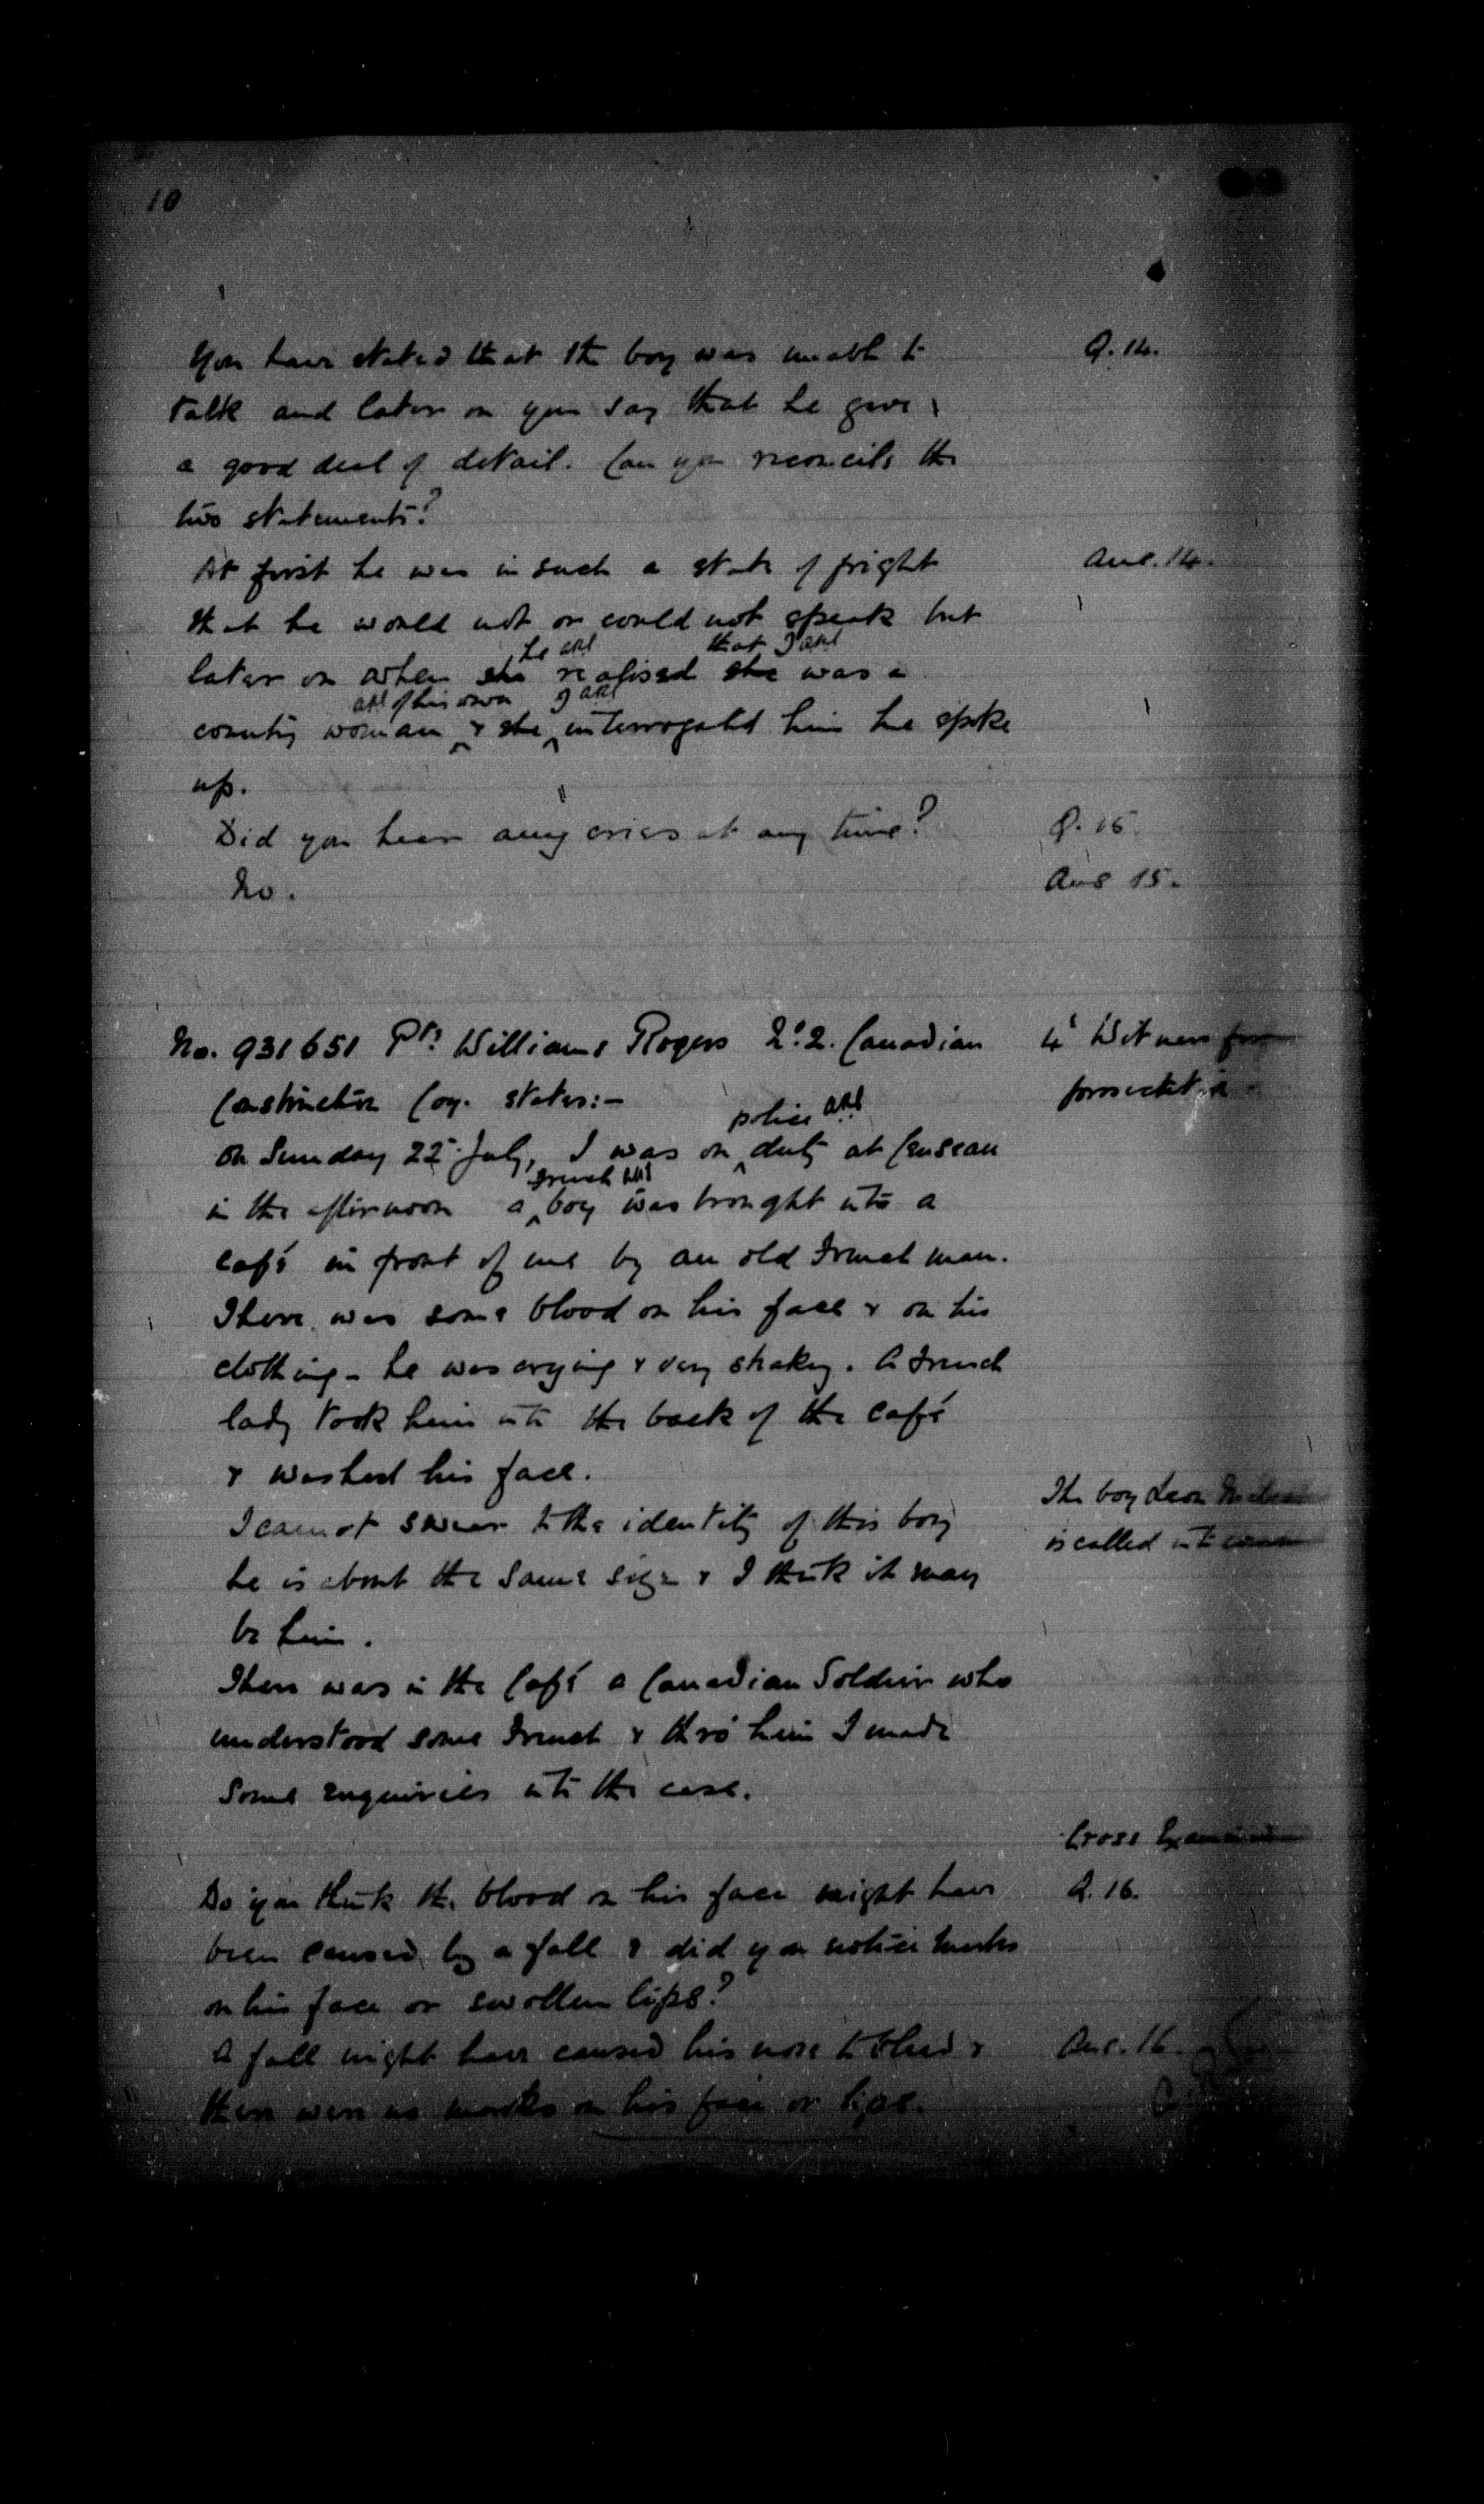 10
You have stated that the boy was unable to Q. 14.
talk and later on you say that he gave
a good deal of detail. Can you reconcile the
two statements?
At first he was in such a state of fright Ans. 14.
that he would not or could not speak but
he that I
later on when she realised she was a
of his own I
country woman & she interrogated him he spoke
up.
Did you hear any cries at any time? Q. 15.
No. Ans 15.
No. 931651 Pte. Williams Rogers No. 2. Canadian 4th Witness for
Construction Coy. states:- prosecution
police
On Sunday 22nd July, I was on duty at
French
in the afternoon a boy was brought into a
café in front of me by an old French man.
There was some blood on his face & on his
clothing - he was crying & very shaky. A French
lady took him into the back of the café
& washed his face.
I cannot swear to the identity of this boy The boy Leon
he is about the same size & I think it may is called into
be him.
There was in the Café a Canadian Soldier who
understood some French & thro' him I made
some enquiries into the case.
Cross
Do you think the blood on his face might have Q. 16.
been caused by a fall & did you notice marks
on his face or swollen lips?
A fall might have caused his nose to bleed & Ans. 16.
there were no marks on his face or lips.